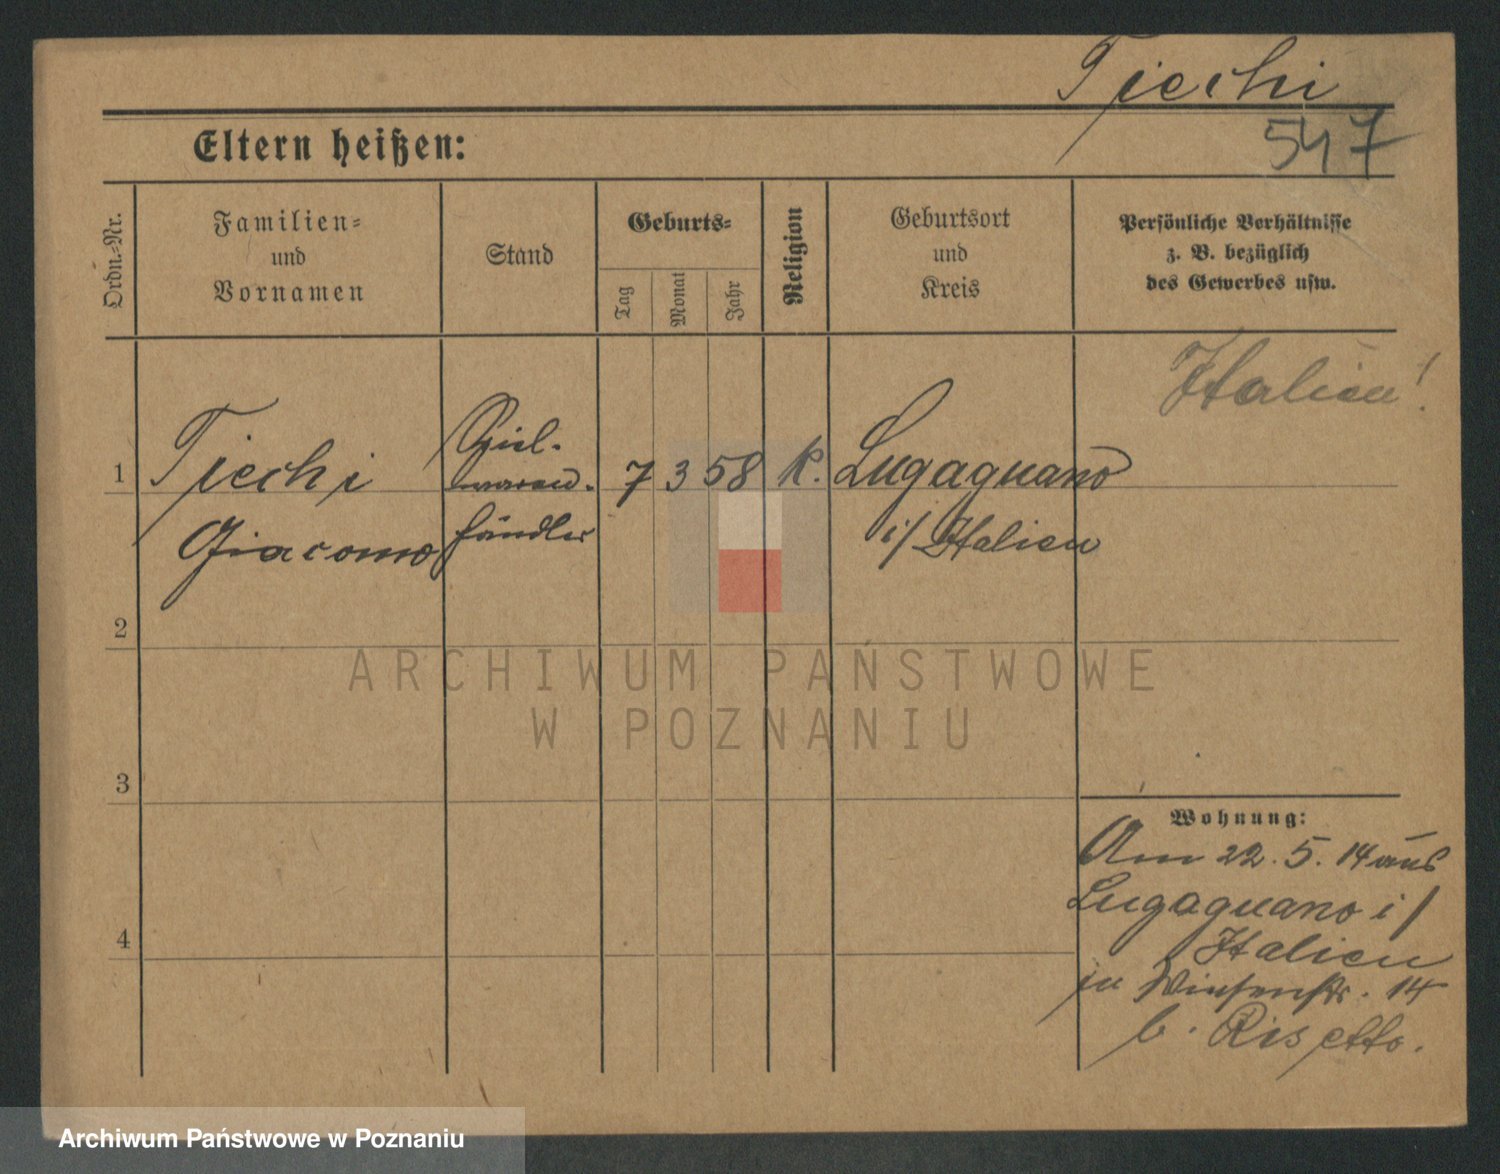 Tiechi
547
Eltern heißen:
Ordn.-Nr.
Familien-
und
Vornamen
Stand
Geburts-
Tag
Monat
Jahr
Religion
Geburtsort
und
Kreis
Persönliche Verhältnisse
z. B. bezüglich
des Gewerbes usw.
Italien!
1 Tiechi
Giacomo
Spiel-
waren-
händler
7 3 58 k. Lugagnano
i/ Italien
2
3
4
Wohnung:
Am 22. 5. 14 aus
Lugagnano i/
Italien
in Wiesenstr. 14
b. Rispetto.
ARCHIWUM PAŃSTWOWE
W POZNANIU
Archiwum Państwowe w Poznaniu